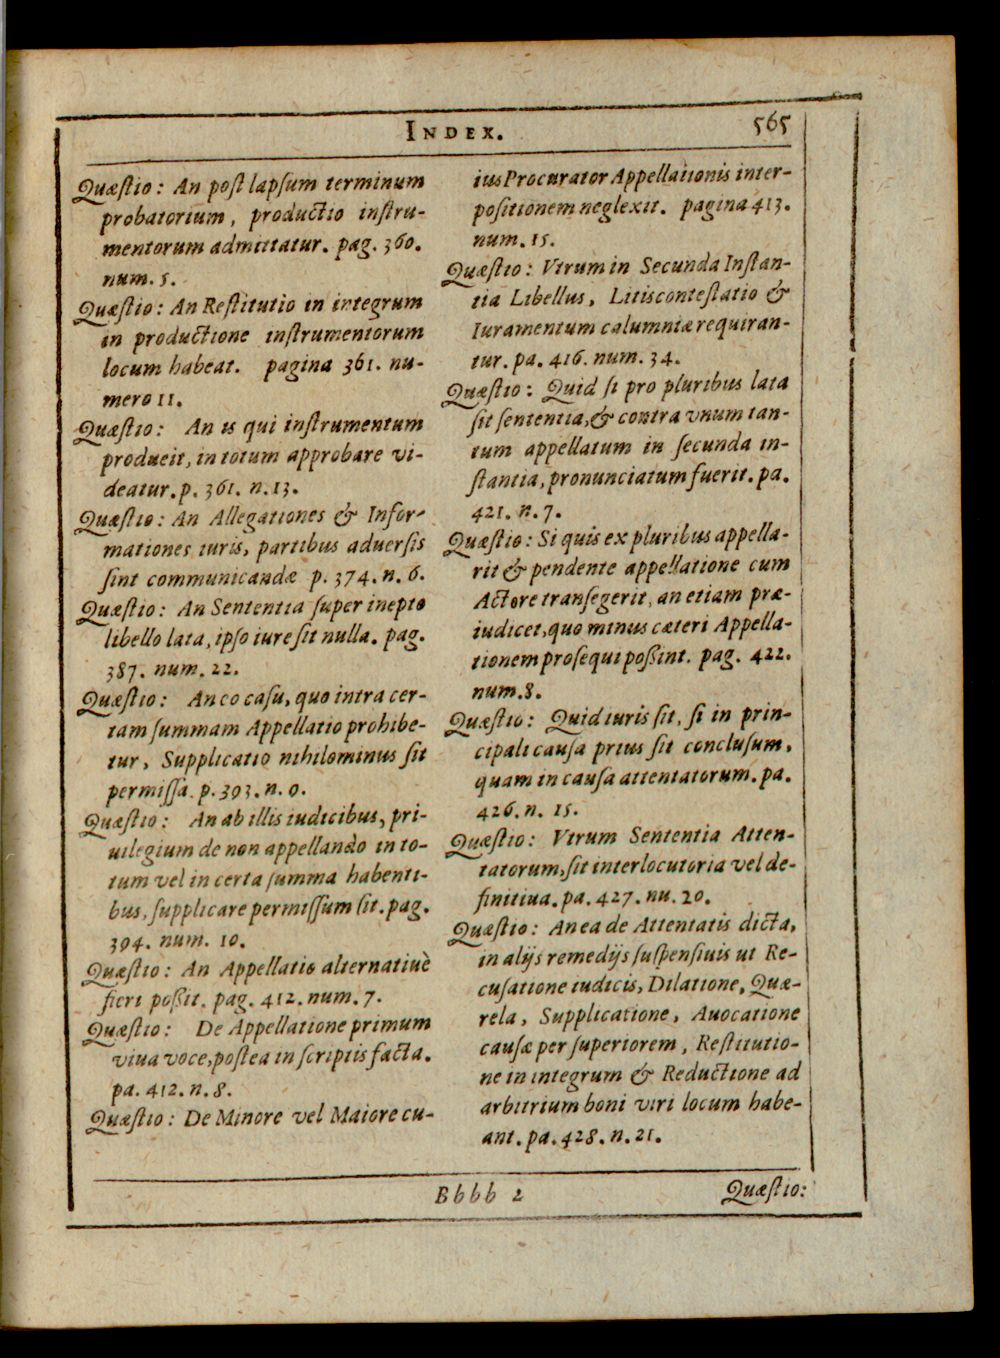 INDEX. 565
Quæſtio: An poſt lapſum terminum
probatorium, productio inſtru-
mentorum admittatur. pag. 360.
num. 5.
Quæſtio: An Reſtitutio in integrum
in productione inſtrumentorum
locum habeat. pagina 361. nu-
mero 11.
Quæſtio: An is qui inſtrumentum
produeit, in totum approbare vi-
deatur. p. 361. n. 13.
Quæſtio: An Allegationes & Infor-
mationes iuris, partibus aduerſis
ſint communicandæ p. 374. n. 6.
Quæſtio: An Sententia ſuper inepto
libello lata, ipſo iure ſit nulla. pag.
387. num. 22.
Quæſtio: An eo caſu, quo intra cer-
tam ſummam Appellatio prohibe-
tur, Supplicatio nihilominus ſit
permiſſa. p. 393. n. 9.
Quæſtio: An ab illis iudicibus, pri-
uilegium de non appellando in to-
tum vel in certa ſumma habenti-
bus, ſupplicare permiſſum ſit. pag.
394. num. 10.
Quæſtio: An Appellatio alternatiuè
fieri poßit. pag. 412. num. 7.
Quæſtio: De Appellatione primum
viua voce, poſtea in ſcriptis facta.
pa. 412. n. 8.
Quæſtio: De Minore vel Maiore cu-
ius Procurator Appellationis inter-
poſitionem neglexit. pagina 413.
num. 15.
Quæſtio: Vtrum in Secunda Inſtan-
tia Libellus, Litiscontestatio &
Iuramentum calumniæ requiran-
tur. pa. 416. num. 34.
Quæſtio: Quid ſi pro pluribus lata
ſit ſententia, & contra vnum tan-
tum appellatum in ſecunda in-
ſtantia, pronunciatum fuerit. pa.
421. n. 7.
Quæſtio: Si quis ex pluribus appella-
rit & pendente appellatione cum
Actore tranſegerit, an etiam præ-
iudicet, quo minus cæteri Appella-
tionem proſequi poßint. pag. 422.
num. 8.
Quæſtio: Quid iuris ſit, ſi in prin-
cipali cauſa prius ſit concluſum,
quam in cauſa attentatorum. pa.
426. n. 15.
Quæſtio: Vtrum Sententia Atten-
tatorum, ſit interlocutoria vel de-
finitiua. pa. 427. nu. 20.
Quæſtio: An ea de Attentatis dicta,
in alijs remedijs ſuſpenſiuis ut Re-
cuſatione iudicis, Dilatione, Quæ-
rela, Supplicatione, Auocatione
cauſæ per ſuperiorem, Reſtitutio-
ne in integrum & Reductione ad
arbitrium boni viri locum habe-
ant. pa. 428. n. 21.
Bbbb 2 Quæſtio: